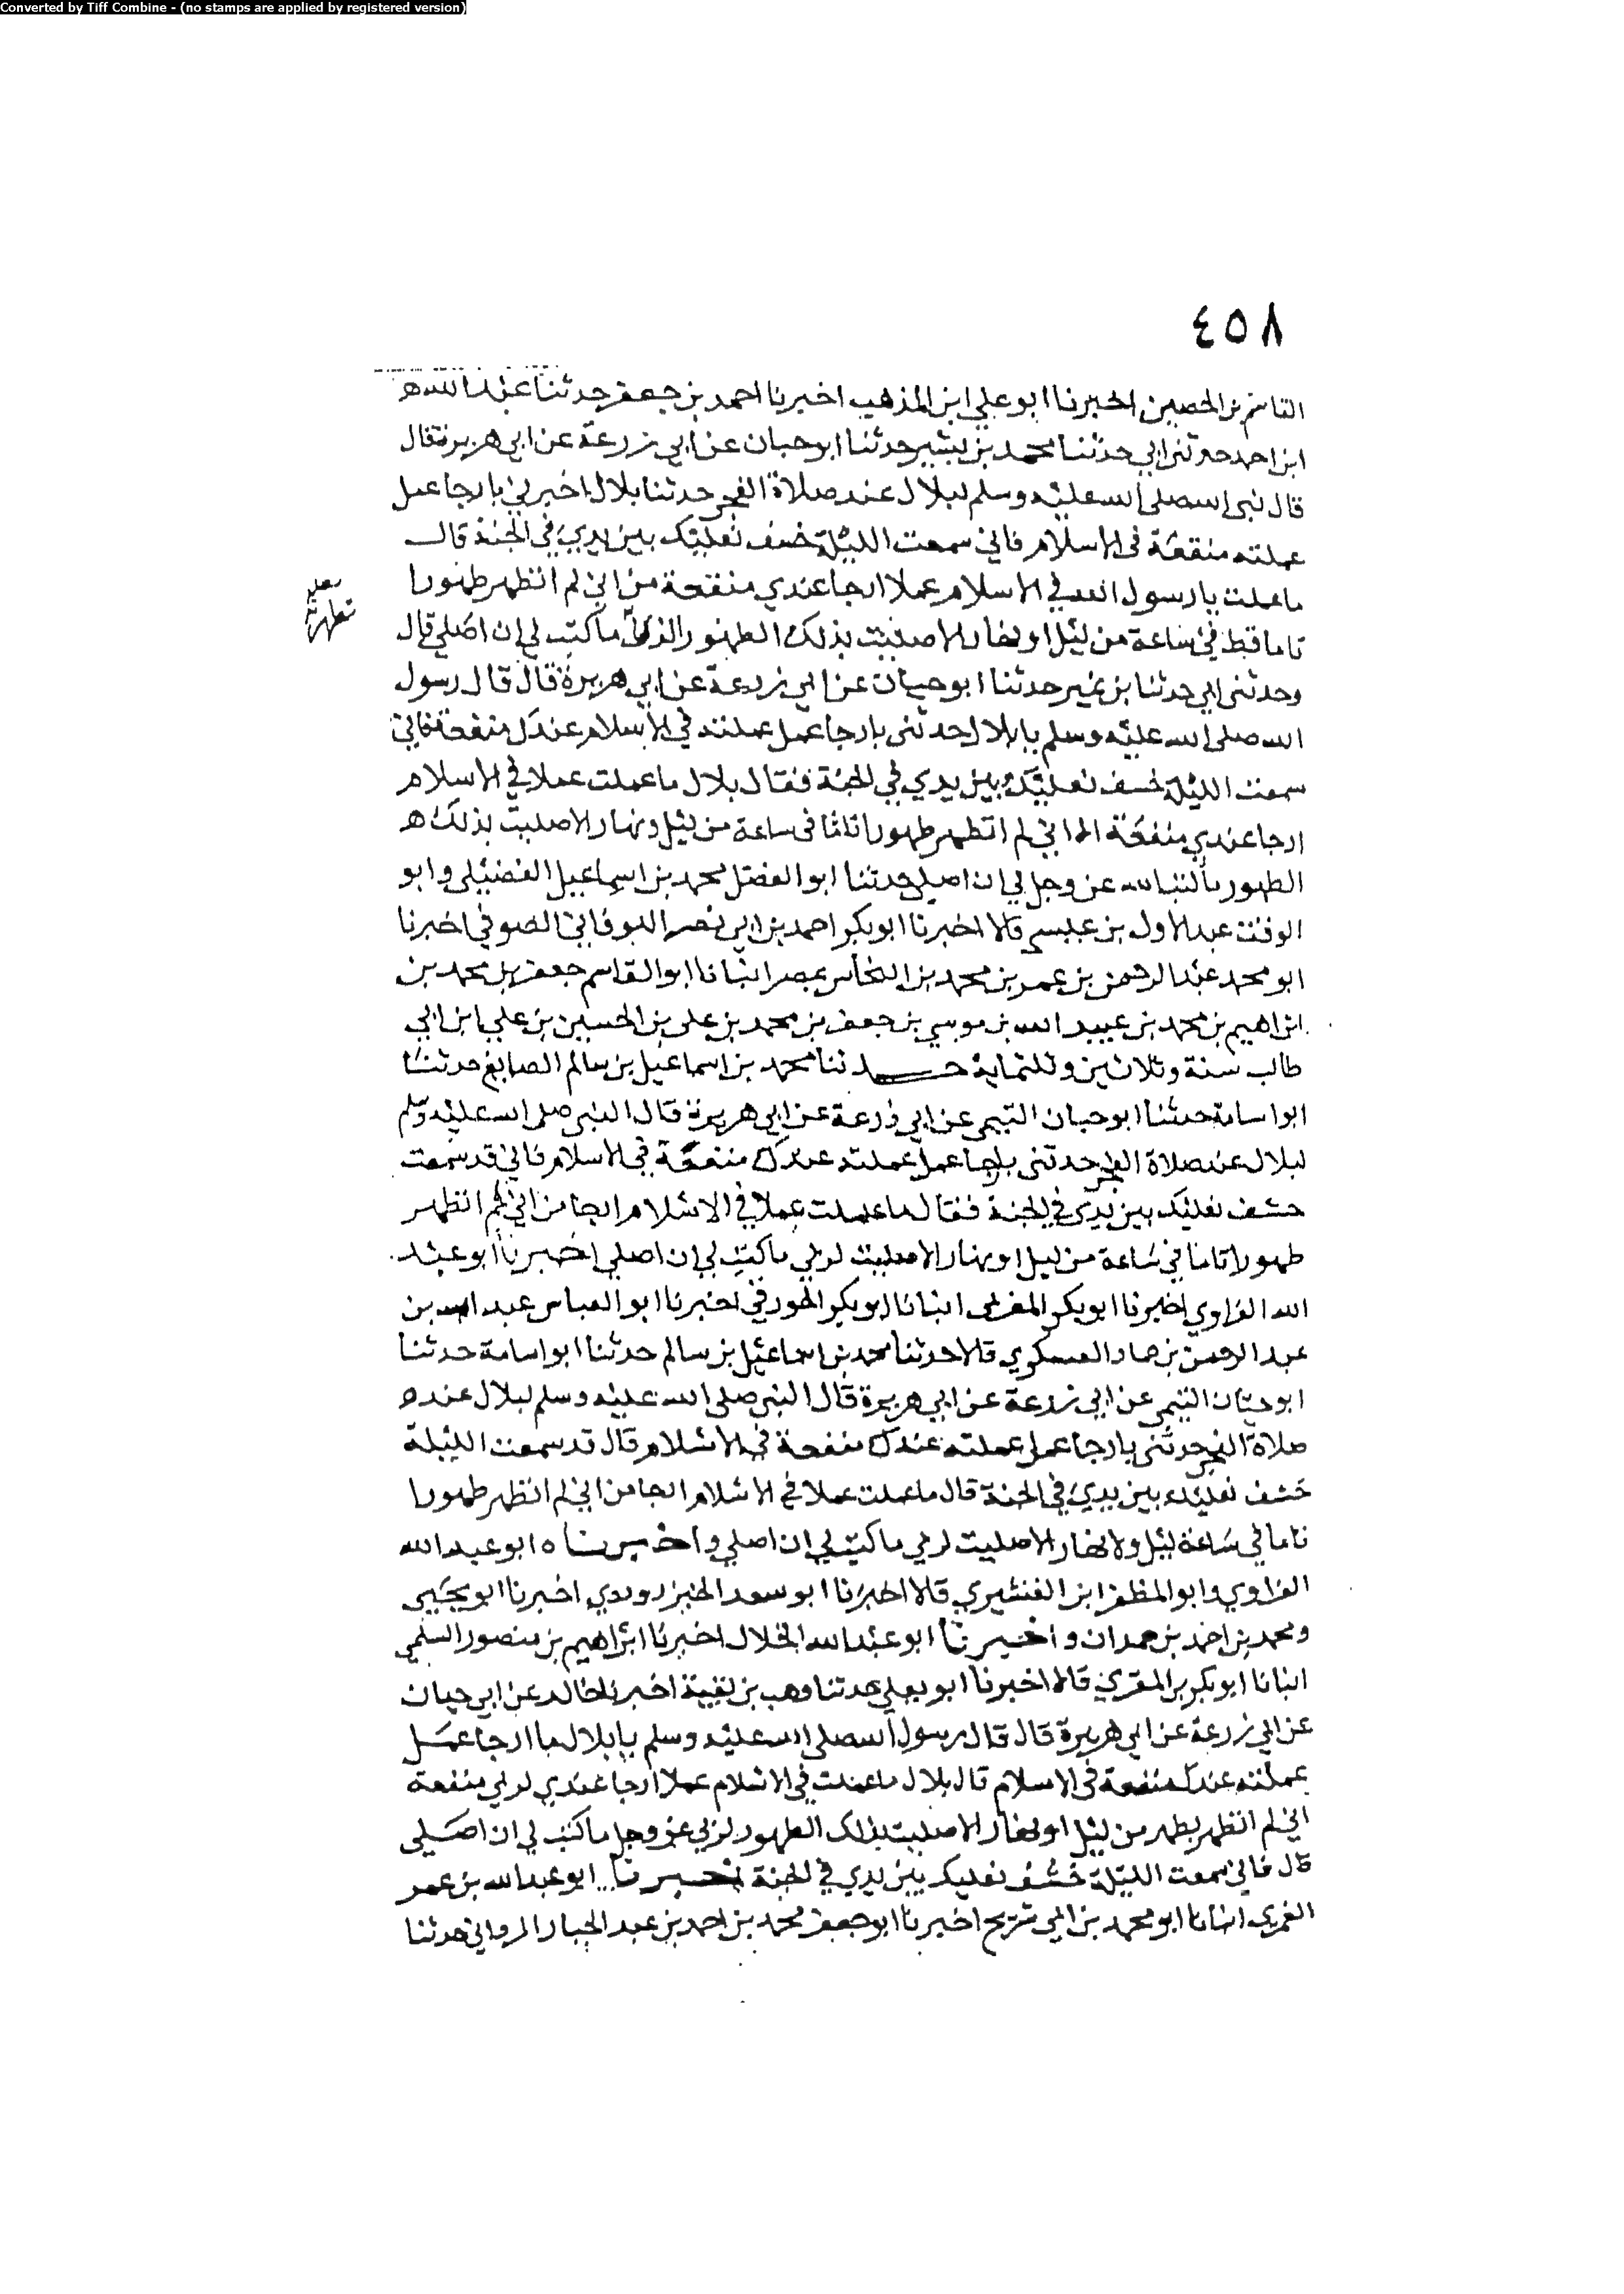 Converted by Tiff Combine - (no stamps are applied by registered version)
٤٥٨
القاسم بن الحصين اخبرنا ابو علي ابن المذهب اخبرنا احمد بن جعفر حدثنا عبد الله ه
ابن احمد حدثني ابي حدثنا محمد بن بشير حدثنا ابو حيان عن ابي زرعة عن ابي هريرة قال
قال نبي الله صلى الله عليه وسلم لبلال عند صلاة الفجر حدثنا بلال اخبرني بارجا عمل
عملته منفعة في الاسلام فاني سمعت الليلة خشف نعليك بين يدي في الجنة قال
ما عملت يا رسول الله في الاسلام عملا ارجا عندي منفعة من اني لم اتطهر طهورا
تطهرة
تاما قط في ساعة من ليل او نهار الا صليت بذلك الطهور الذي ما كتب لي ان اصلي قال
وحدثني ابي حدثنا بن نمير حدثنا ابو حيان عن ابي زرعة عن ابي هريرة قال قال رسول
الله صلى الله عليه وسلم يا بلال حدثني بارجا عمل عملته في الاسلام عندك منفعة فاني
سمعت الليلة خشف نعليك بين يدي في الجنة فقال بلال ما عملت عملا في الاسلام
ارجا عندي منفعة الا اني لم اتطهر طهورا تاما في ساعة من ليل ونهار الا صليت بذلك ه
الطهور ما الله عز وجل لي ان اصلي حدثنا ابو الفضل محمد بن اسماعيل الفضيلي وابو
الوقت عبد الاول بن عيسى قالا اخبرنا ابو بكر احمد بن ابي نصر الكوفاني الصوفي اخبرنا
ابو محمد عبد الرحمن بن عمر بن محمد بن النحاس بمصر انبانا ابو القاسم جعفر بن محمد بن
ابراهيم بن محمد بن عبيد الله بن موسي بن جعفر بن محمد بن علي بن الحسين بن علي ابن ابي
طالب سنة وثلاثين وثلثماية حدثنا محمد بن اسماعيل بن سالم الصايغ حدثنا
ابو اسامة حدثنا ابو حيان التيمي عن ابي زرعة عن ابي هريرة قال النبي صلى الله عليه وسلم
لبلال عند صلاة الفجر حدثني بارجا عمل عملته عندك منفعة في الاسلام فاني قد سمعت
خشف نعليك بين يدي في الجنة فقال ما عملت عملا في الاسلام ارجا من اني لم اتطهر
طهورا تاما في ساعة من ليل او نهار الا صليت لربي ما كتب لي ان اصلي اخبرنا ابو عبد
الله الفراوي اخبرنا ابو بكر المغربي انبانا ابو بكر الجوزقي اخبرنا ابو العباس عبد الله بن
عبد الرحمن بن حماد العسكري قالا حدثنا محمد بن اسماعيل بن سالم حدثنا ابو اسامة حدثنا
ابو حيان التيمي عن ابي زرعة عن ابي هريرة قال النبي صلى الله عليه وسلم لبلال عند ه
صلاة الفجر حدثني بارجا عمل عملته عندك منفعة في الاسلام قال قد سمعت الليلة
خشف نعليك بين يدي في الجنة قال ما عملت عملا في الاسلام ارجا من اني لم اتطهر طهورا
تاما في ساعة ليل ولا نهار الا صليت لربي ما كتب لي ان اصلي واخبرناه ابو عبد الله
الفراوي وابو المظفر ابن القشيري قالا اخبرنا ابو سعد الجنزرودي اخبرنا ابو يحيى
ومحمد بن احمد بن حمدان واخبرنا ابو عبد الله الخلال اخبرنا ابراهيم بن منصور السلمي
انبانا ابو بكر بن المقري قالا اخبرنا ابو يعلي حدثنا وهب بن بقية اخبرنا خالد عن ابي حيان
عن ابي زرعة عن ابي هريرة قال قال رسول الله صلى الله عليه وسلم يا بلال ما ارجا عمل
عملته عندك منفعة في الاسلام قال بلال ما عملت في الاسلام عملا ارجا عندي لربي منفعة
اني لم اتطهر بطهر من ليل او نهار الا صليت بذلك الطهور لربي عز وجل ما كتب لي ان اصلي
قال فاني سمعت الليلة خشف نعليك بين يدي في الجنة اخبرنا ابو عبد الله بن عمر
العمري انبانا ابو محمد بن ابي شريح اخبرنا ابو جعفر محمد بن احمد بن عبد الجبار الرواني حدثنا